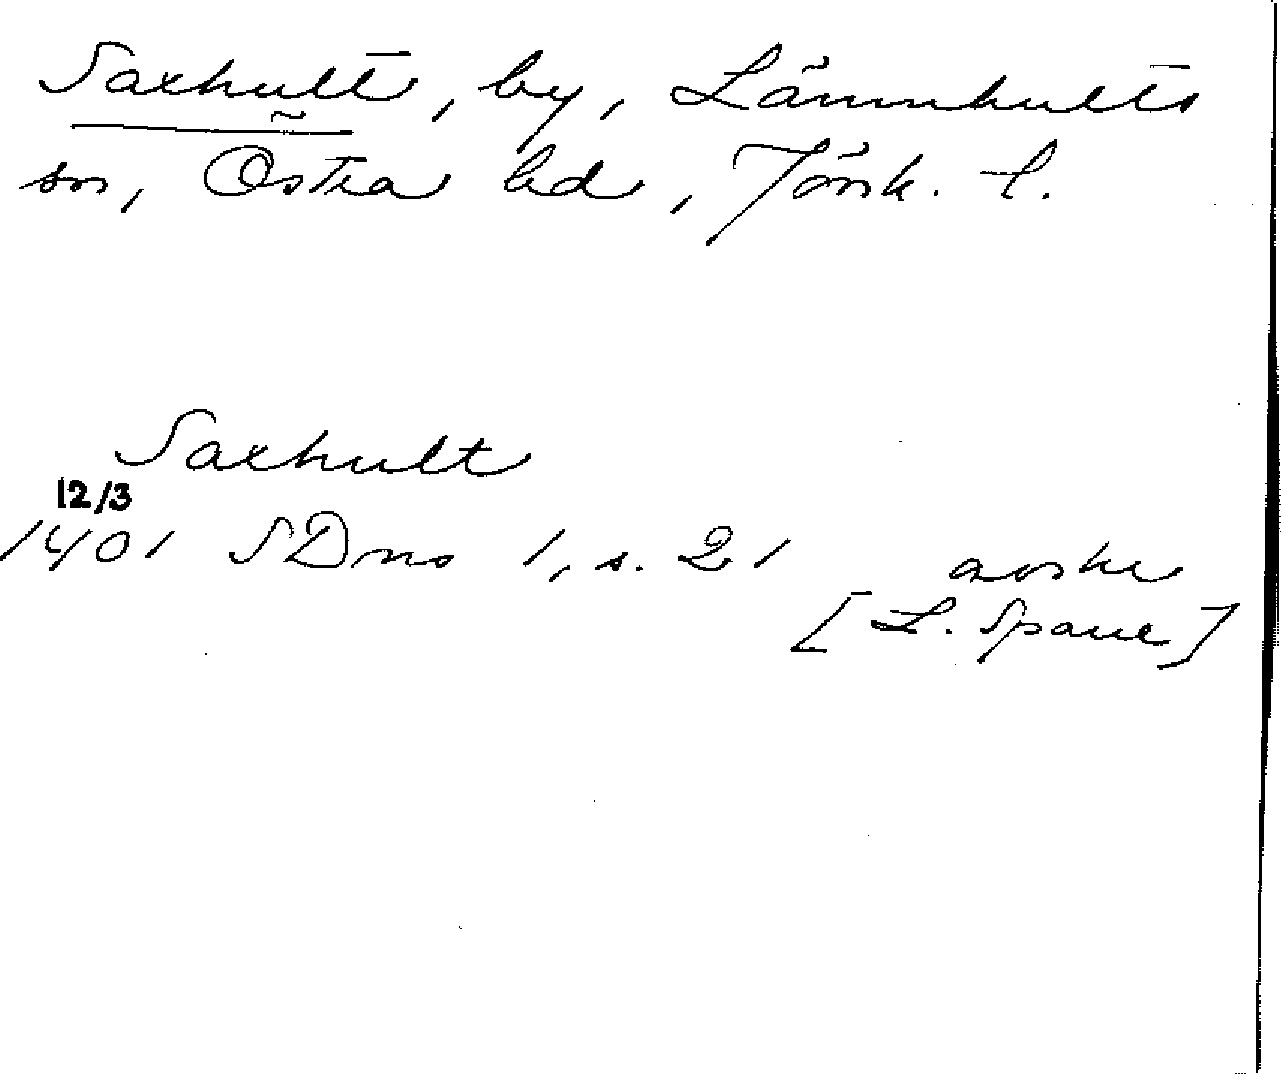 Saxhult, by, Lännhults
sn, Östra hd, Jönk. l.
Saxhult
12/3
1401 SDns 1, s. 21 avskr
[L. Spaue]